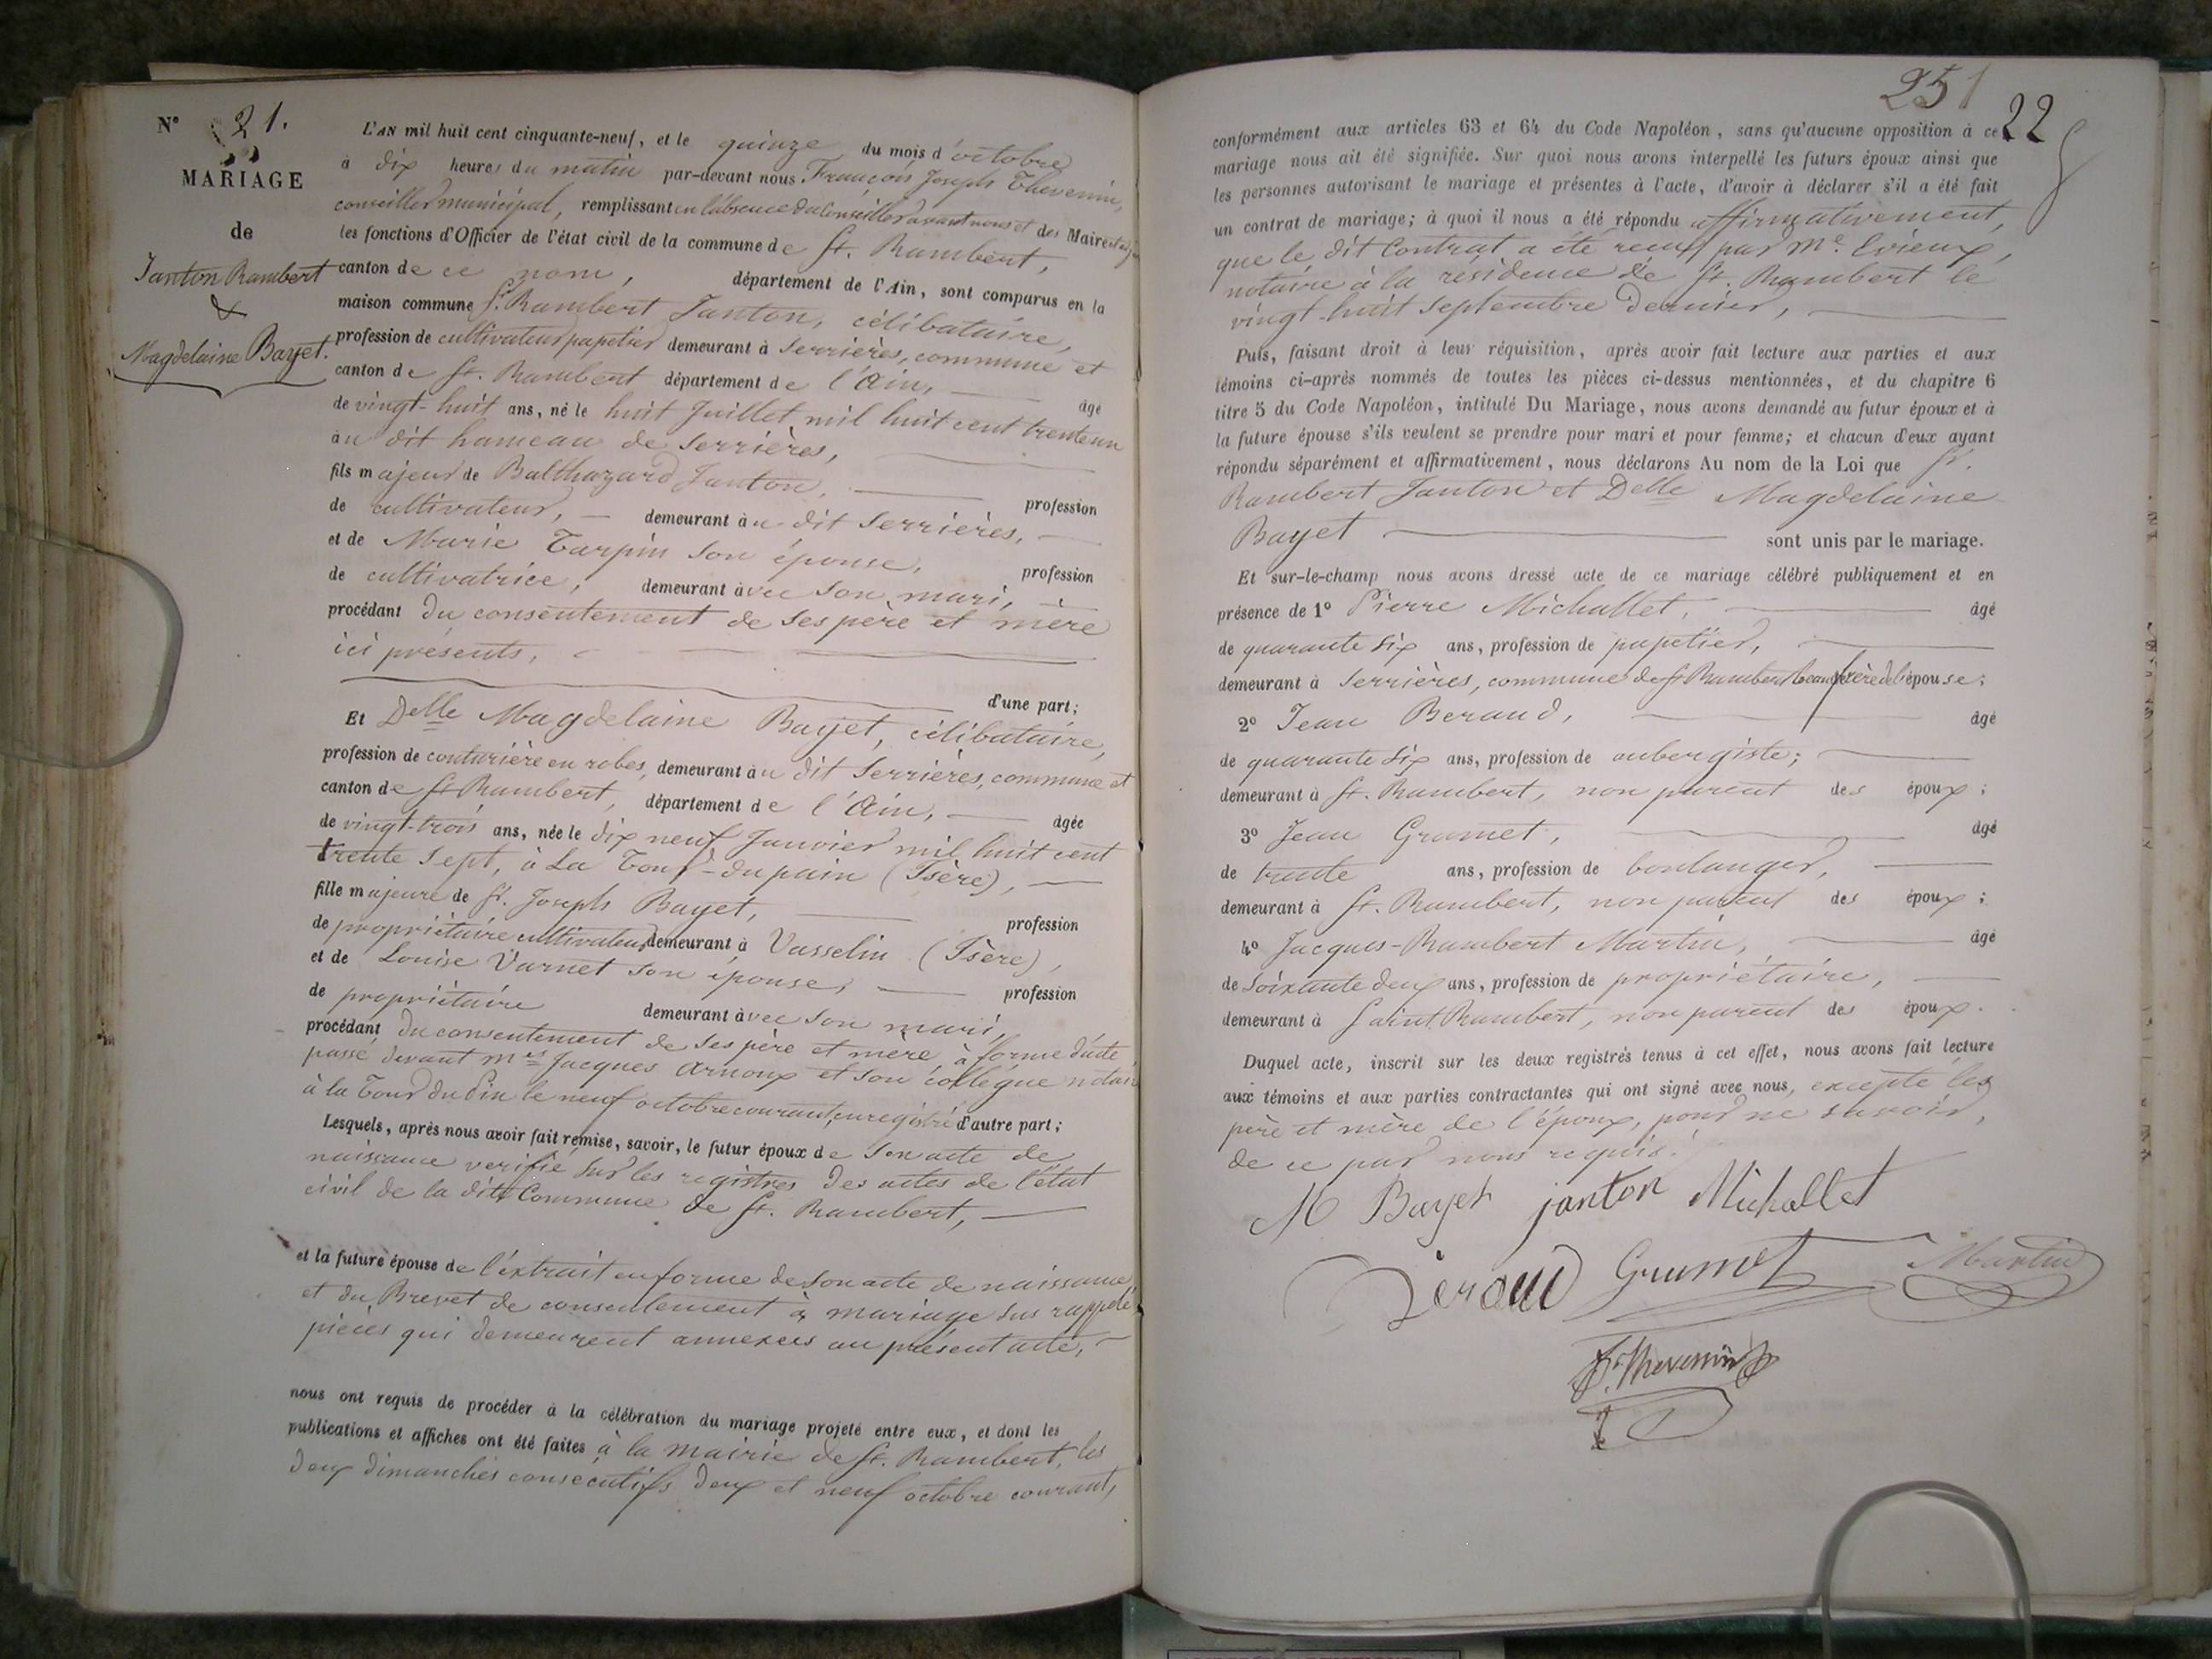 N° 21.
MARIAGE
de
Janton Rambert
&
Magdelaine Bayet.
L'AN mil huit cent cinquante-neuf, et le quinze du mois d'octobre
à dix heures du matin par-devant nous François Joseph Thevenin,
conseiller municipal, remplissant en l'absence du Conseiller avant nous et des Maire et
les fonctions d'Officier de l'état civil de la commune de St. Rambert,
canton de ce nom, département de l'Ain, sont comparus en la
maison commune Sr. Rambert Janton, célibataire,
profession de cultivateur papetier demeurant à Serrières, commune et
canton de St. Rambert département de l'Ain, âgé
de vingt-huit ans, né le huit Juillet mil huit cent trente un
au dit hameau de Serrières,
fils majeur de Balthazard Janton, profession
de cultivateur, demeurant au dit Serrières,
et de Marie Tarpin son épouse, profession
de cultivatrice, demeurant avec son mari,
procédant du consentement de ses père et mère
ici présents,
d'une part;
Et Delle Magdelaine Bayet, célibataire,
profession de couturière en robes, demeurant au dit Serrières, commune et
canton de St Rambert, département de l'Ain, âgée
de vingt-trois ans, née le dix neuf Janvier mil huit cent
trente sept, à La Tour-du pain (Isère),
fille majeure de Sr. Joseph Bayet, profession
de propriétaire cultivateur demeurant à Vasselin (Isère),
et de Louise Varnet son épouse, profession
de propriétaire demeurant avec son mari,
procédant du consentement de ses père et mère, à forme d'acte
passé devant Mes Jacques Arnoux et son collègue notaire
à la Tour du Pin le neuf octobre courant, enregistré d'autre part;
Lesquels, après nous avoir fait remise, savoir, le futur époux de son acte de
naissance verifié sur les registres des actes de l'état
civil de la dite Commune de St. Rambert,
et la future épouse de l'extrait en forme de son acte de naissance,
et du Brevet de consentement à mariage sus rappelé,
pièces qui demeurent annexées au présent acte,
nous ont requis de procéder à la célébration du mariage projeté entre eux, et dont les
publications et affiches ont été faites à la mairie de St. Rambert, les
deux dimanches consécutifs deux et neuf octobre courant,
251
22
conformément aux articles 63 et 64 du Code Napoléon, sans qu'aucune opposition à ce
mariage nous ait été signifiée. Sur quoi nous avons interpellé les futurs époux ainsi que
les personnes autorisant le mariage et présentes à l'acte, d'avoir à déclarer s'il a été fait
un contrat de mariage; à quoi il nous a été répondu affirmativement,
que le dit Contrat a été reçu par Me. Evieux,
notaire à la résidence de St. Rambert le
vingt-huit Septembre dernier,
Puis, faisant droit à leur réquisition, après avoir fait lecture aux parties et aux
témoins ci-après nommés de toutes les pièces ci-dessus mentionnées, et du chapitre 6
titre 5 du Code Napoléon, intitulé Du Mariage, nous avons demandé au futur époux et à
la future épouse s'ils veulent se prendre pour mari et pour femme; et chacun d'eux ayant
répondu séparément et affirmativement, nous déclarons Au nom de la Loi que Sr.
Rambert Janton et Delle Magdelaine
Bayet sont unis par le mariage.
Et sur-le-champ nous avons dressé acte de ce mariage célébré publiquement et en
présence de 1° Pierre Michallet, âgé
de quarante six ans, profession de papetier,
demeurant à Serrières, commune de St Rambert beau frère de l'épouse;
2° Jean Beraud, âgé
de quarante six ans, profession de aubergiste;
demeurant à St. Rambert, non parent des époux;
3° Jean Grumet, âgé
de trente ans, profession de boulanger,
demeurant à St. Rambert, non parent des époux;
4° Jacques-Rambert Martin, âgé
de soixante deux ans, profession de propriétaire,
demeurant à Saint Rambert, non parent des époux.
Duquel acte, inscrit sur les deux registrés tenus à cet effet, nous avons fait lecture
aux témoins et aux parties contractantes qui ont signé avec nous, excepté les
père et mère de l'époux, pour ne savoir,
de ce par nous requis.
M Bayet janton Michallet
Beraud Grumet Martin
Thevenin